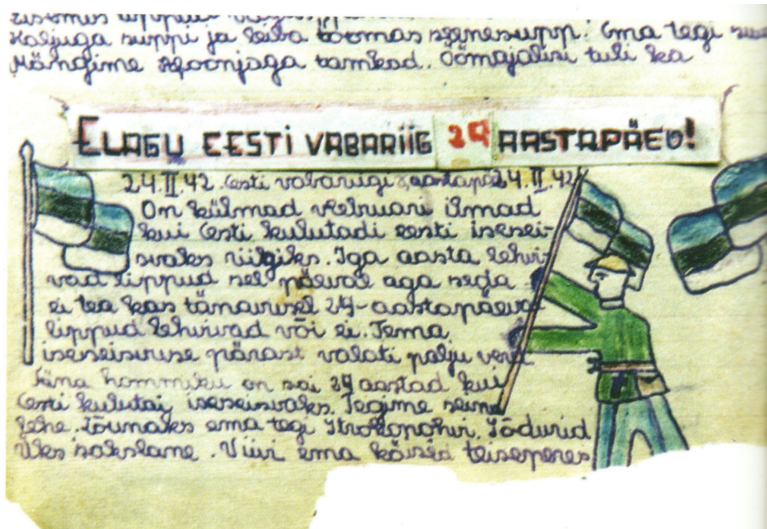 Kaljuga suppi ja leiba toomas seenesupp. Ema tegi
Mängime Spoonjaga tamkad. Öömajalisi tuli ka
ELAGU EESTI VABARIIG 24 AASTAPÄEV!
24.II.42. Eesti vabariigi aastapäe 24.II.42
On külmad veebruari ilmad
kui Eesti kulutadi eesti isesei-
svaks riilgiks. Iga aasta lehvi-
vad lippud sel päeval aga seda
ei tea kas tänavusel 24-aastapäeva
lippud lehvivad või ei. Tema
iseseisvuse pärast valati palju verd
Täna hommiku on sai 24 aastad kui
Eesti kulutaj iseseisvaks. Tegime seina
lehe. Lõunaks ema tegi Sõdurid
Üks sakslane. Viivi ema käisid teiseperes